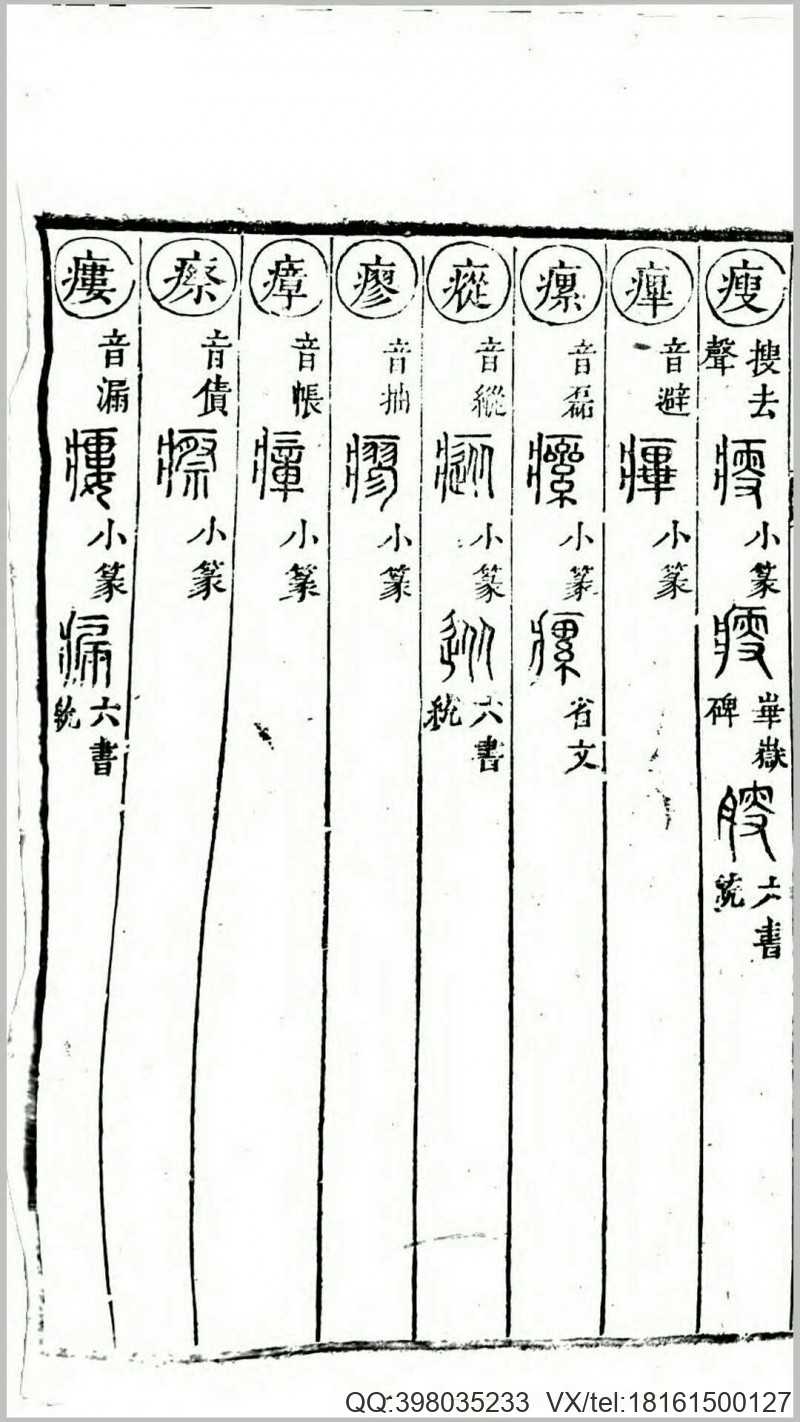 瘦 搜去聲 小篆 華嶽碑 六書統
㾱 音避 小篆
瘰 音磊 小篆 省文
瘲 音縱 小篆 六書統
瘳 音抽 小篆
瘴 音帳 小篆
瘵 音債 小篆
瘻 音漏 小篆 六書統
QQ:398035233 VX/tel:18161500127